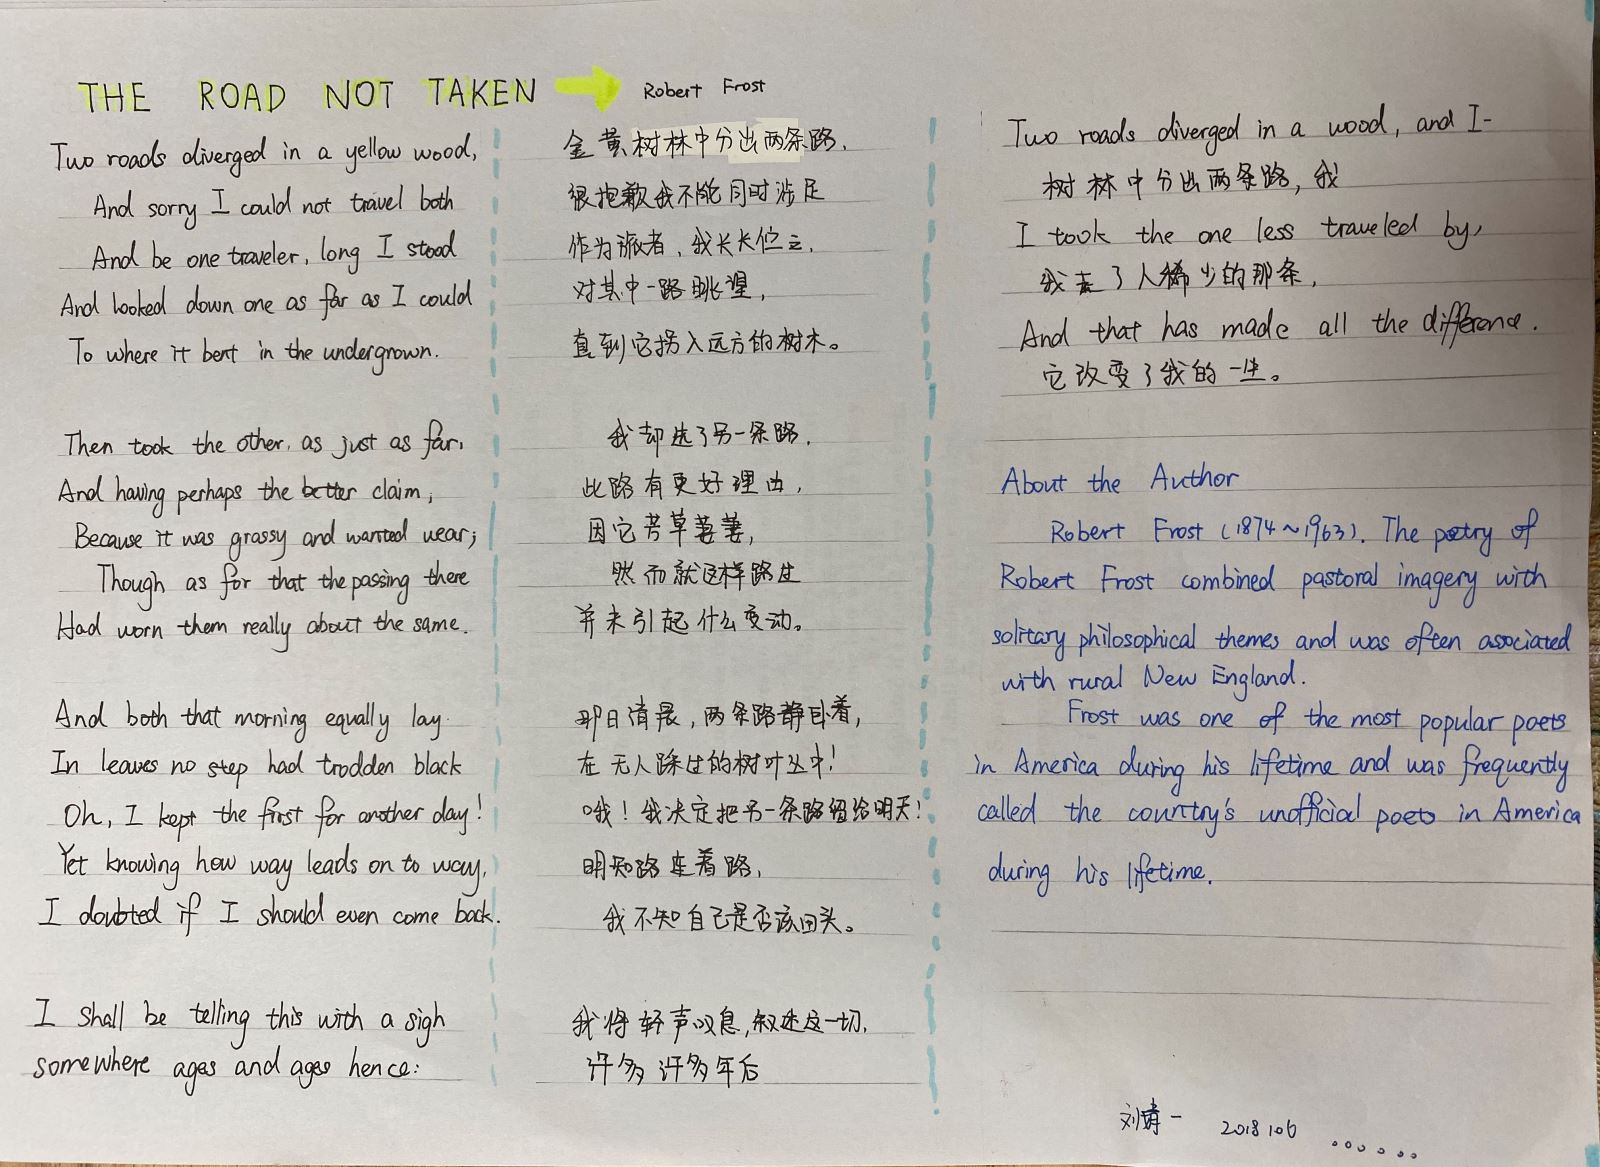 THE ROAD NOT TAKEN → Robert Frost
Two roads diverged in a yellow wood,
And sorry I could not travel both
And be one traveler, long I stood
And looked down one as far as I could
To where it bent in the undergrown.
Then took the other, as just as far,
And having perhaps the better claim,
Because it was grassy and wanted wear;
Though as for that the passing there
Had worn them really about the same.
And both that morning equally lay
In leaves no step had trodden black
Oh, I kept the first for another day!
Yet knowing how way leads on to way,
I doubted if I should even come back.
I shall be telling this with a sigh
somewhere ages and ages hence:
金黄树林中分出两条路,
很抱歉我不能同时涉足
作为旅者,我长长伫立,
对其中一路眺望,
直到它拐入远方的树木。
我却选了另一条路,
此路有更好理由,
因它芳草萋萋,
然而就这样路过
并未引起什么变动。
那日清晨,两条路静卧着,
在无人踩过的树叶丛中!
哦!我决定把另一条路留给明天!
明知路连着路,
我不知自己是否该回头。
我将轻声叹息,叙述这一切,
许多许多年后
Two roads diverged in a wood, and I-
树林中分出两条路,我
I took the one less traveled by,
我走了人稀少的那条,
And that has made all the difference.
它改变了我的一生。
About the Author
Robert Frost (1874~1963). The poetry of
Robert Frost combined pastoral imagery with
solitary philosophical themes and was often associated
with rural New England.
Frost was one of the most popular poets
in America during his lifetime and was frequently
called the country's unofficial poets in America
during his lifetime.
刘 一 2018 10 6 。。。。。。